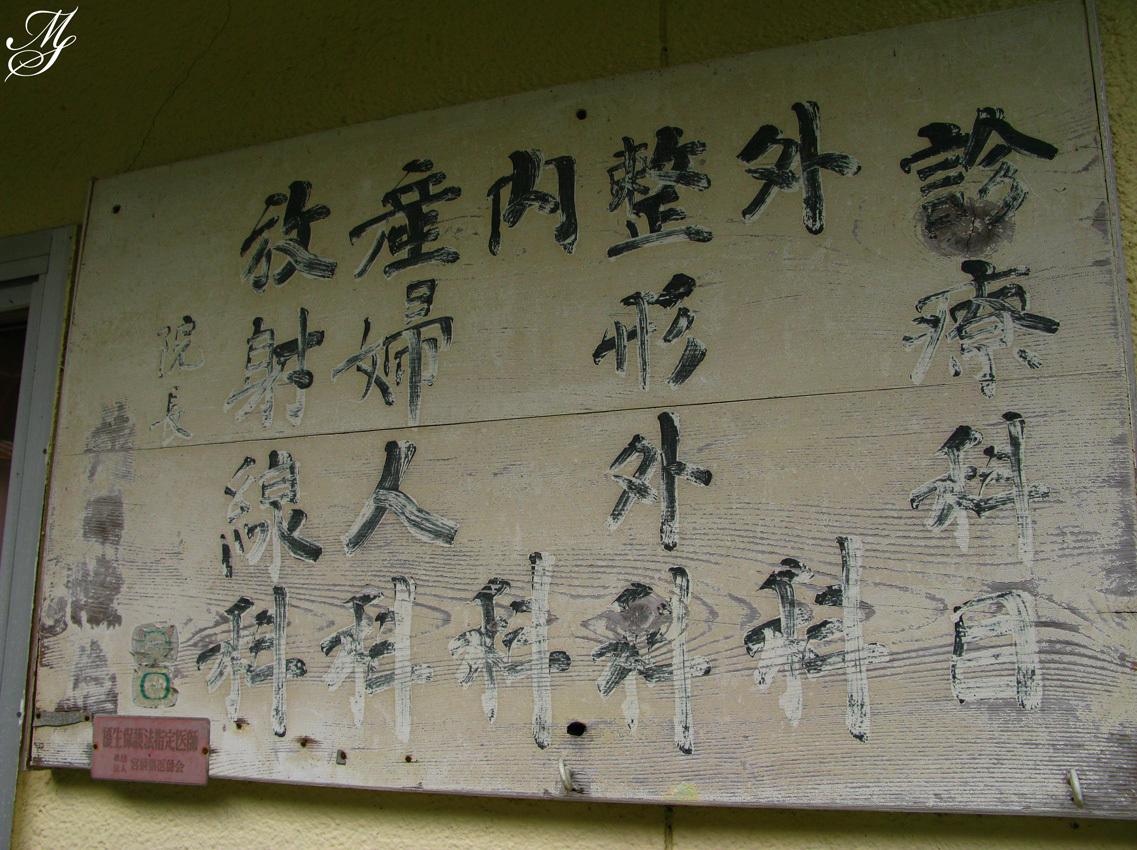 診療科目
外科
整形外科
内科
産婦人科
放射線科
院長
優生保護法指定医師
MJ